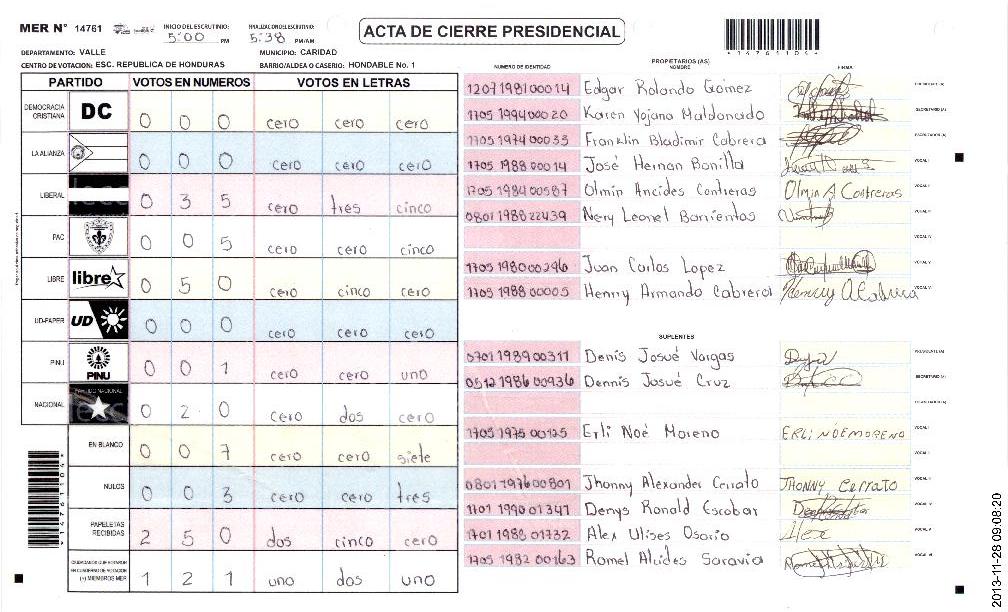 MER N° 14761
INICIO DEL ESCRUTINIO: 5:00 PM
FINALIZACION DEL ESCRUTINIO: 5:38 PM/AM
ACTA DE CIERRE PRESIDENCIAL
*14761104*
DEPARTAMENTO: VALLE
MUNICIPIO: CARIDAD
CENTRO DE VOTACION: ESC. REPUBLICA DE HONDURAS
BARRIO/ALDEA O CASERIO: HONDABLE No. 1
PARTIDO VOTOS EN NUMEROS VOTOS EN LETRAS
DEMOCRACIA CRISTIANA DC 0 0 0 cero cero cero
LA ALIANZA 0 0 0 cero cero cero
LIBERAL 0 3 5 cero tres cinco
PAC 0 0 5 cero cero cinco
LIBRE libre 0 5 0 cero cinco cero
UD-FAPER UD 0 0 0 cero cero cero
PINU PINU 0 0 1 cero cero uno
NACIONAL 0 2 0 cero dos cero
EN BLANCO 0 0 7 cero cero siete
NULOS 0 0 3 cero cero tres
PAPELETAS RECIBIDAS 2 5 0 dos cinco cero
CIUDADANOS QUE VOTARON EN CUADERNO DE VOTACION (+) MIEMBROS MER 1 2 1 uno dos uno
PROPIETARIOS (AS)
NUMERO DE IDENTIDAD NOMBRE FIRMA
1207 1981 00014 Edgar Rolando Gomez
1705 1994 00020 Karen Yojana Maldonado
1705 1974 00033 Franklin Bladimir Cabrera
1705 1988 00014 José Hernan Bonilla VOCAL I
1705 1984 00587 Olmin Ancides Contreras Olmin A Contreras
0801 1988 22439 Nery Leonel Barrientos
1705 1980 00296 Juan Carlos Lopez
1705 1988 00005 Henny Armando Cabrera
SUPLENTES
0701 1989 00311 Denis Josué Vargas
0512 1986 00936 Dennis Josué Cruz
1705 1975 00125 Erli Noé Moreno ERLI NOE MORENO
0801 1976 00801 Jhonny Alexander Cerrato JHONNY Cerrato
1701 1990 01347 Denys Ronald Escobar
1701 1988 01732 Alex Ulises Osorio Alex
1705 1982 00163 Romel Alcides Saravia
*14761104*
2013-11-28 09:08:20